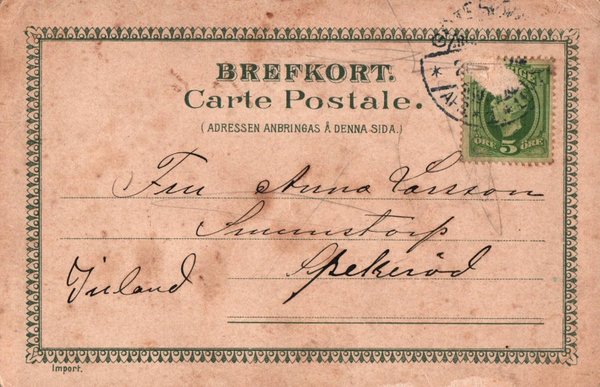 BREFKORT.
Carte Postale.
(ADRESSEN ANBRINGAS Å DENNA SIDA.)
ÖRE 5 ÖRE
Fru Anna Larsson
Smenstorp
Spekeröd
Jörland
Import.